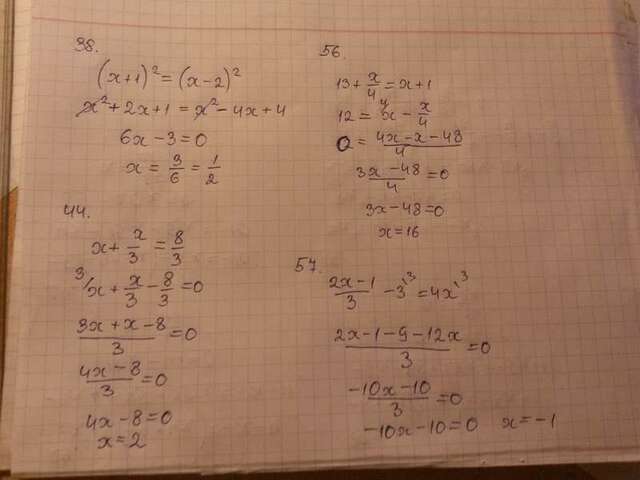 38.
(x+1)² = (x-2)²
x² + 2x + 1 = x² - 4x + 4
6x - 3 = 0
x = 3/6 = 1/2
44.
x + x/3 = 8/3
3/ x + x/3 - 8/3 = 0
(3x + x - 8)/3 = 0
(4x - 8)/3 = 0
4x - 8 = 0
x = 2
56.
13 + x/4 = x + 1
12 = 4/ x - x/4
0 = (4x - x - 48)/4
(3x - 48)/4 = 0
3x - 48 = 0
x = 16
57.
(2x - 1)/3 - 3 '3 = 4x '3
(2x - 1 - 9 - 12x)/3 = 0
(-10x - 10)/3 = 0
-10x - 10 = 0 x = -1